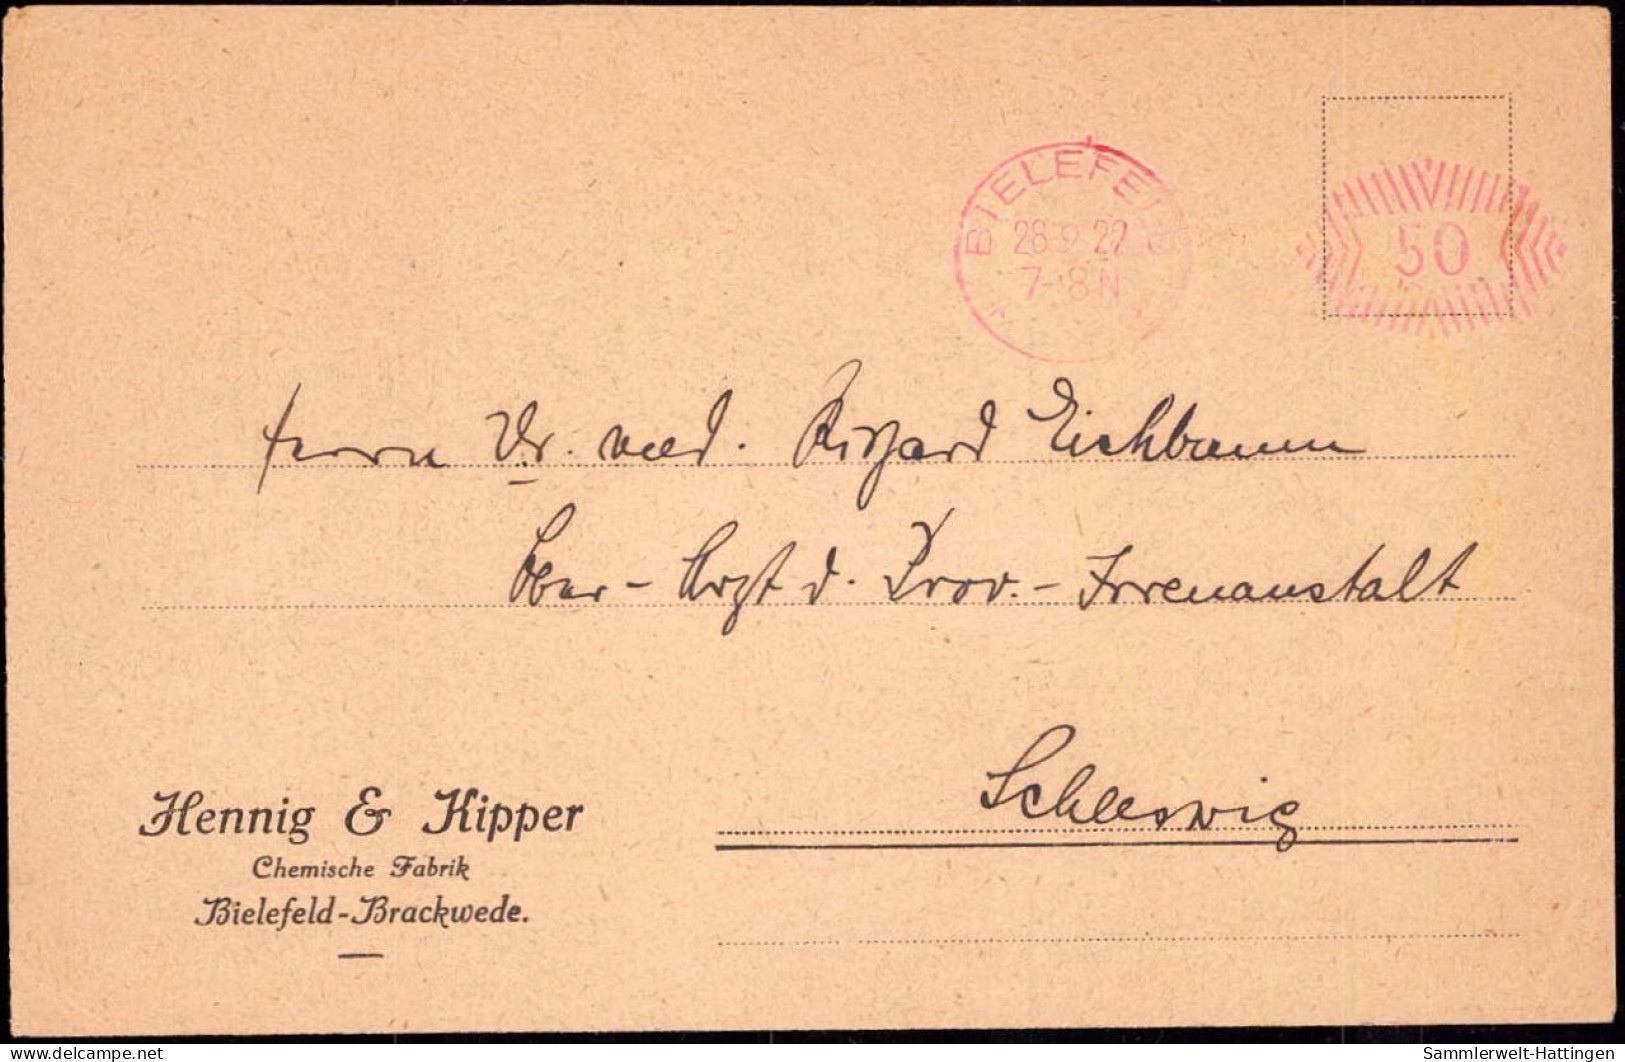 BIELEFELD
28.9.22
7-8N
50
Herrn Dr. med. Richard Eichbaum
Ober-Arzt d. Prov.-Irrenanstalt
Schleswig
Hennig & Kipper
Chemische Fabrik
Bielefeld-Brackwede.
www.delcampe.net
Sammlerwelt-Hattingen